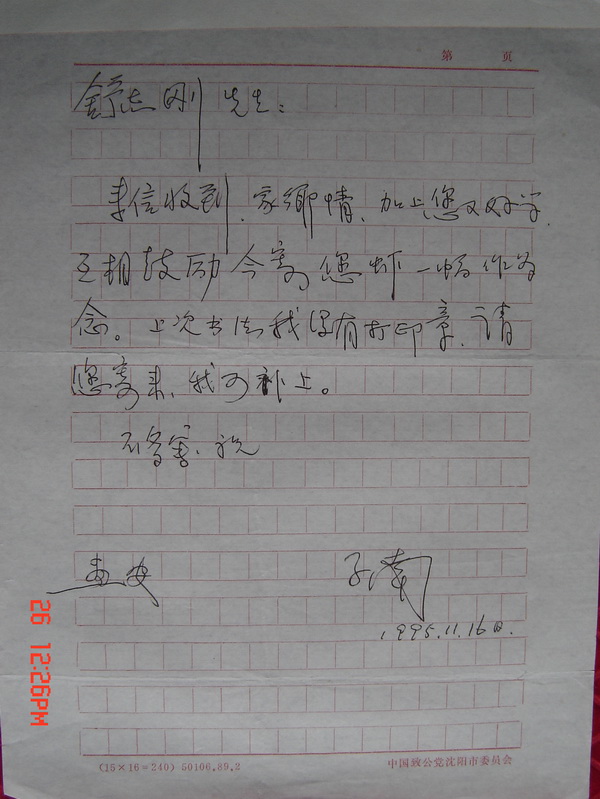 第 页
舒志刚先生：
来信收到、家乡情、加上您又好字、
互相鼓励今寄您虾一幅作为
念。上次书法我没有打印章、请
您寄来、我可补上。
不多写、祝
安 子
1995.11.16日.
26 12:26PM
(15×16=240) 50106.89.2 中国致公党沈阳市委员会